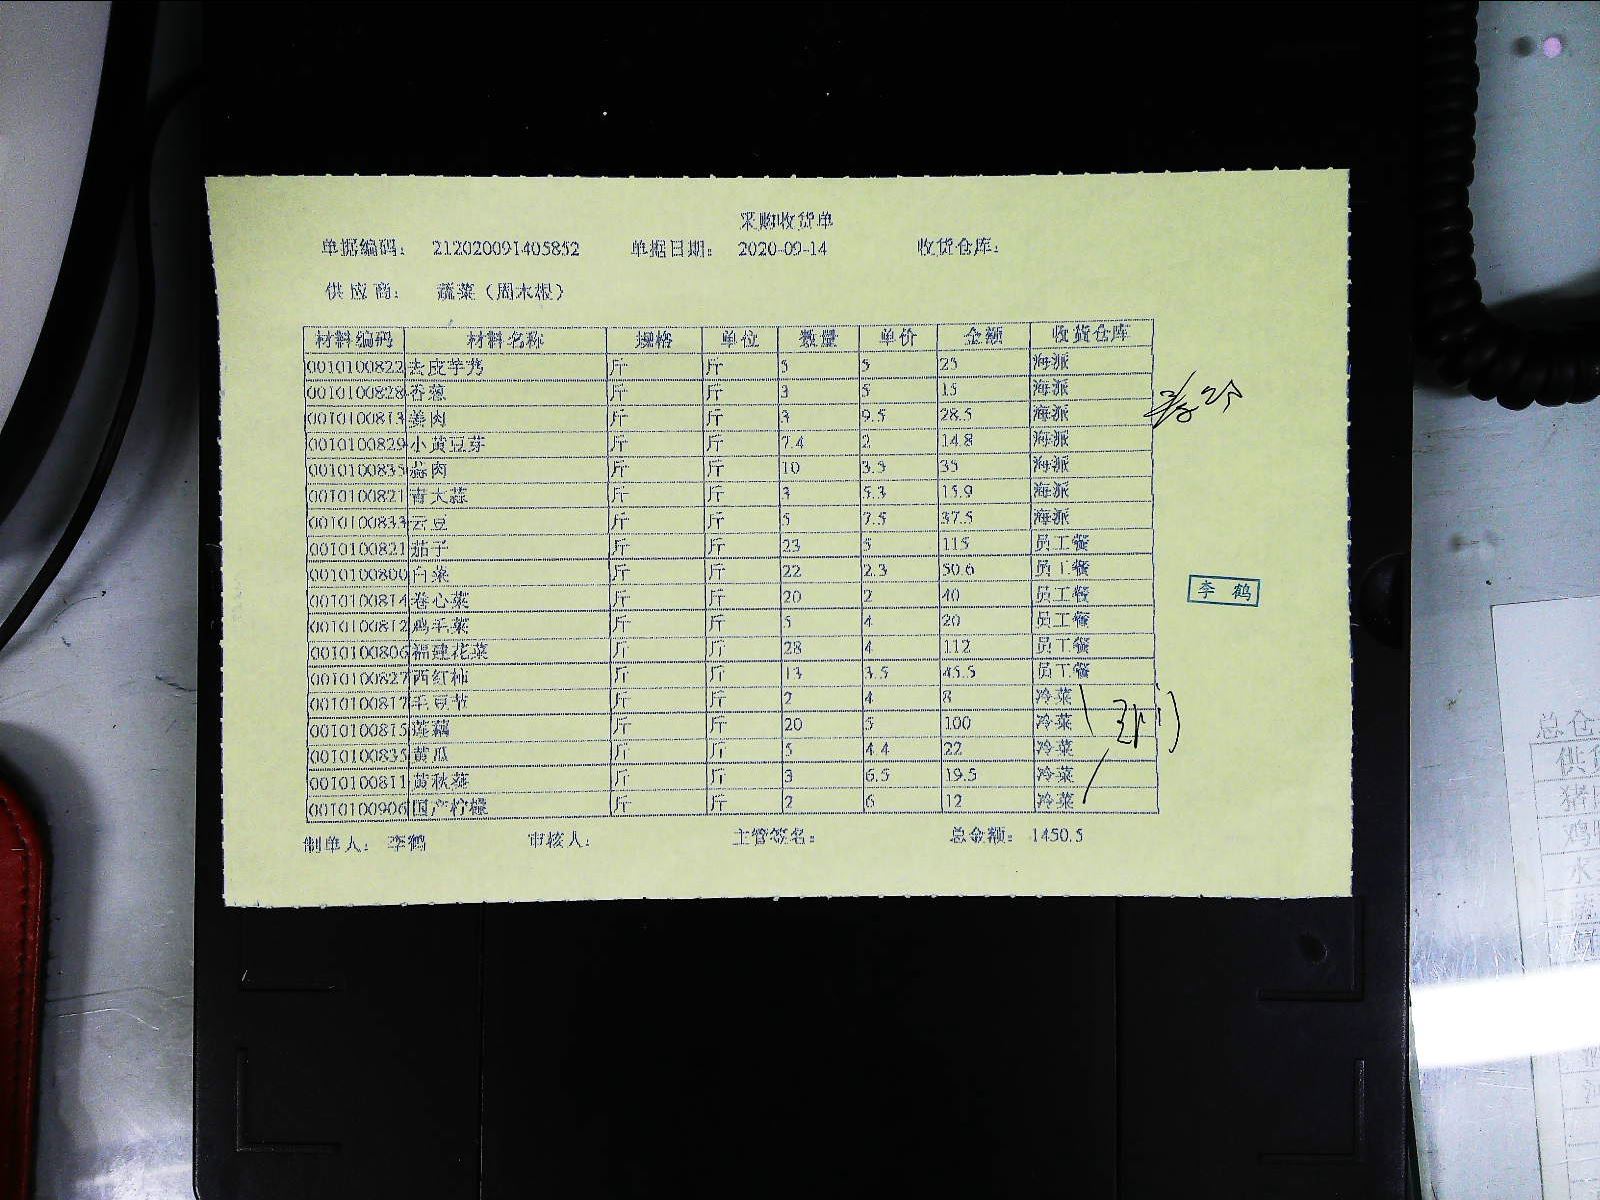 采购收货单
单据编码： 212020091405852 单据日期： 2020-09-14 收货仓库：
供应商： 蔬菜（周木根）
材料编码 材料名称 规格 单位 数量 单价 金额 收货仓库
0010100822 去皮芋艿 斤 斤 5 5 25 海派
0010100828 香葱 斤 斤 3 5 15 海派
0010100813 姜肉 斤 斤 3 9.5 28.5 海派
0010100829 小黄豆芽 斤 斤 7.4 2 14.8 海派
0010100835 蒜肉 斤 斤 10 3.5 35 海派
0010100821 青大蒜 斤 斤 3 5.3 15.9 海派
0010100833 云豆 斤 斤 5 7.5 37.5 海派
0010100821 茄子 斤 斤 23 5 115 员工餐
0010100800 白菜 斤 斤 22 2.3 50.6 员工餐
0010100814 卷心菜 斤 斤 20 2 40 员工餐
0010100812 鸡毛菜 斤 斤 5 4 20 员工餐
0010100806 福建花菜 斤 斤 28 4 112 员工餐
0010100827 西红柿 斤 斤 13 3.5 45.5 员工餐
0010100817 毛豆节 斤 斤 2 4 8 冷菜
0010100815 莲藕 斤 斤 20 5 100 冷菜
0010100835 黄瓜 斤 斤 5 4.4 22 冷菜
0010100811 黄秋葵 斤 斤 3 6.5 19.5 冷菜
0010100906 国产柠檬 斤 斤 2 6 12 冷菜
李鹤
制单人： 李鹤 审核人： 主管签名： 总金额： 1450.5
总仓